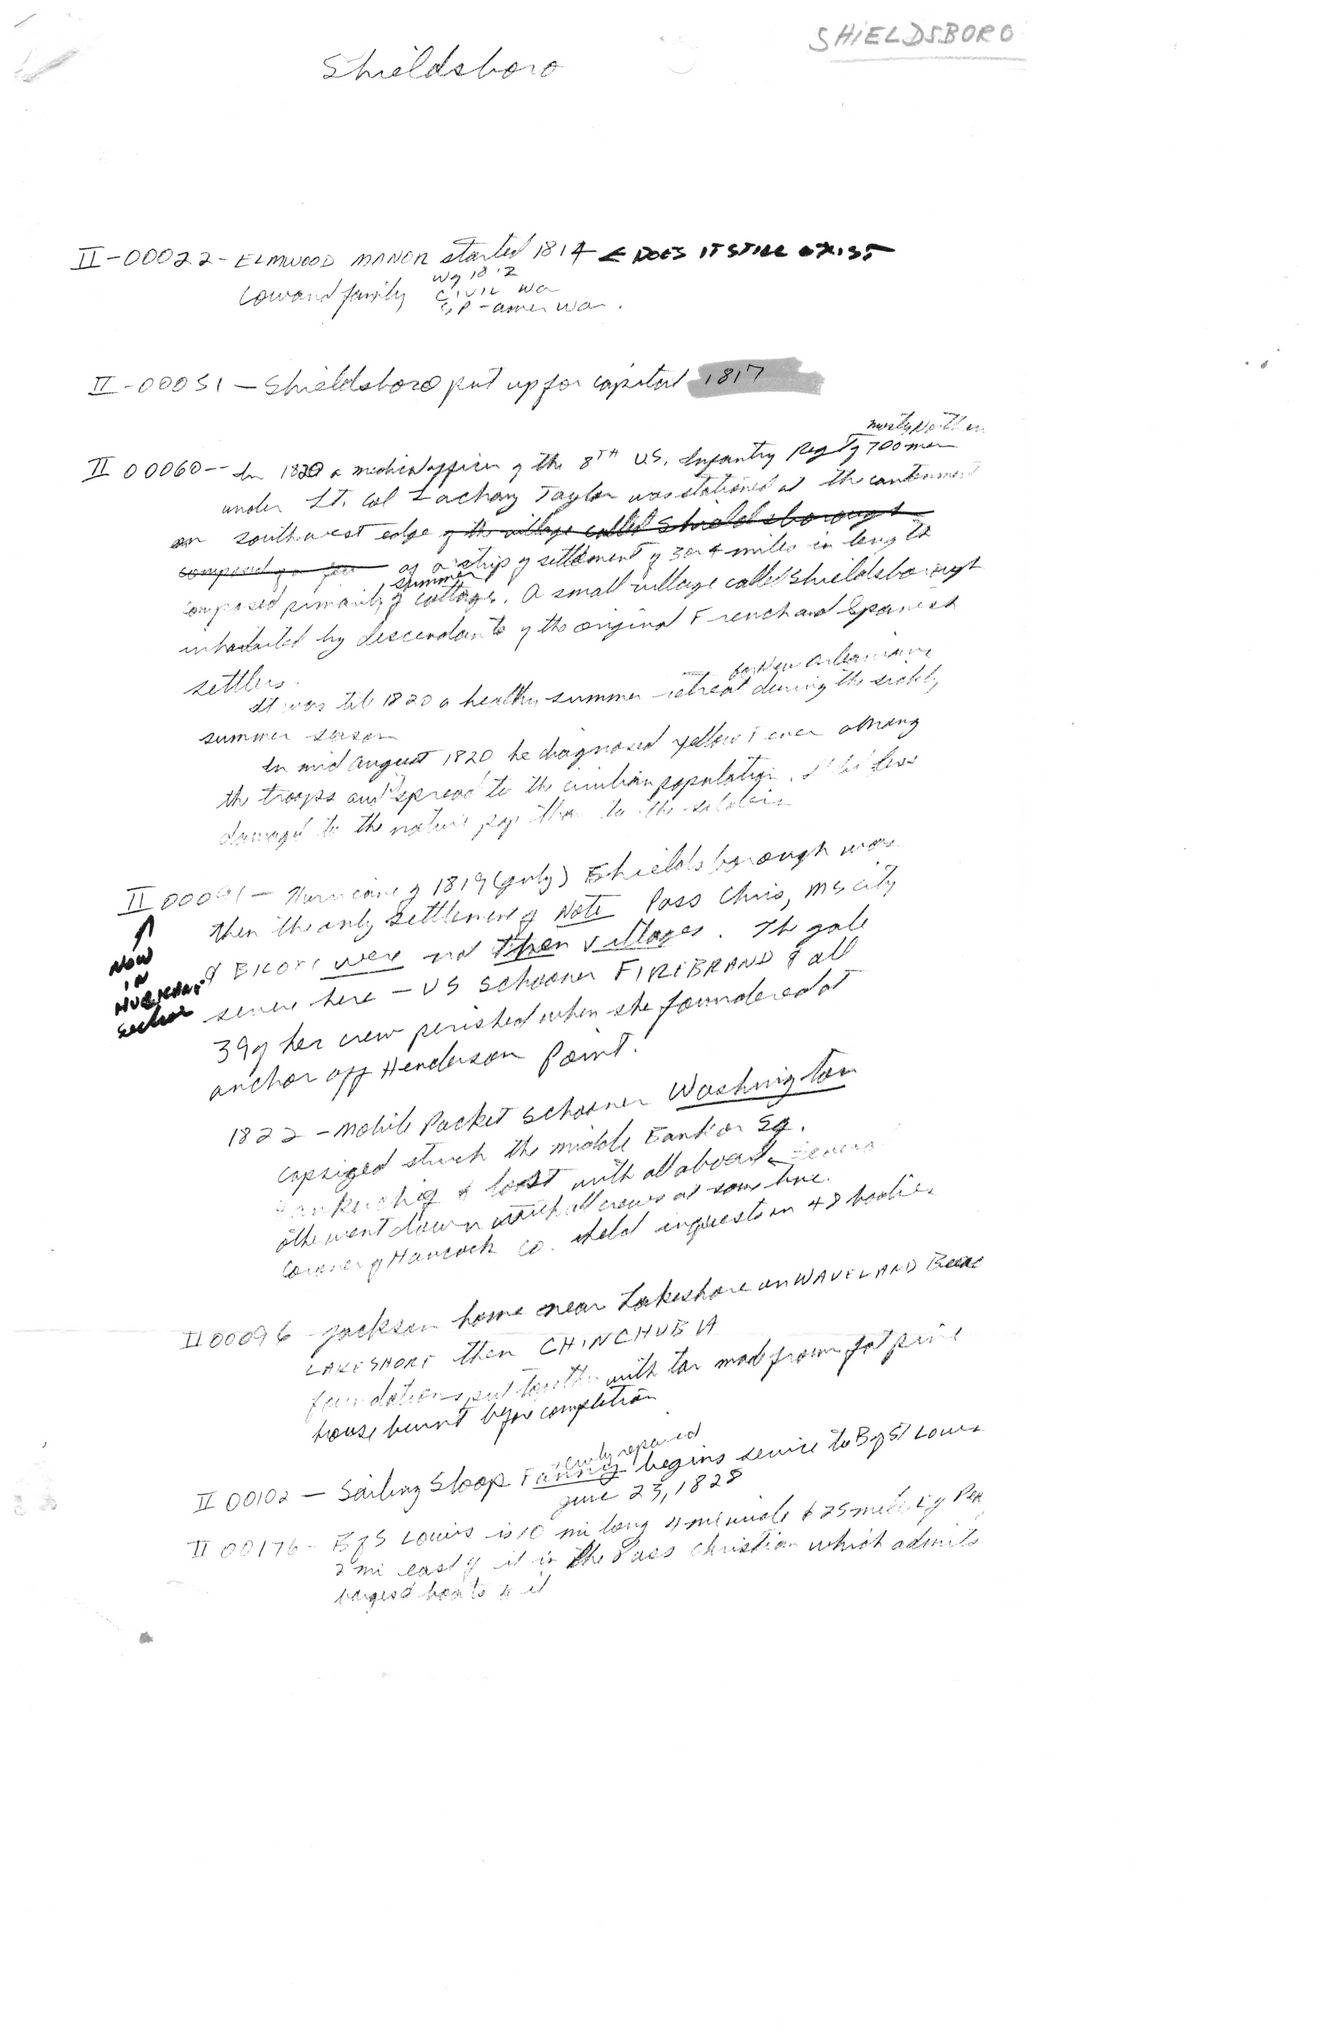 SHIELDSBORO
Shieldsboro
II-00022- ELMWOOD MANOR started 1814 < DOES IT STILL EXIST
Cowand family W of 1812
Civil Wa
SP-amer War.
II-00051 - Shieldsboro put up for capital 1817
mostly Northern
II 00060-- In 1820 a medical officer of the 8TH U.S. Infantry Reg of 700 men
under Lt. Col Zachary Taylor was stationed at the cantonment
on southwest edge of the village called Shieldsborough
composed of a few as a strip of settlement of 3 or 4 miles in length
summer
composed primarily of cottages. A small village called Shieldsborough
inhabited by descendants of the original French and Spanish
settlers.
for New Orleanians
It was til 1820 a healthy summer retreat during the sickly
summer season
In mid august 1820 he diagnosed yellow fever among
the troops and spread to the civilian population. It did less
damage to the native pop than to the soldiers
II 00091 - Hurricane of 1819 (july) Shieldsborough was
then the only settlement of Note Pass Chris, MS City
& Biloxi were not then villages. The gale
severe here - US Schooner FIREBRAND & all
39 of her crew perished when she foundered at
anchor off Henderson Point.
NOW
IN
HURICANE
section
1822 - Mobile Packet Schooner Washington
capsized struck the middle Bank or Sq.
& lost with all aboard - Several
othe went down with all crews at same time.
Coroner of Hancock Co. held inquest on 48 bodies
II 00096 - Jackson home near Lakeshore on WAVELAND Beac
LAKESHORE then CHINCHUBIA
foundations put together with tar made from fat pine
house burnt before completion
newly repaired
II 00102 - Sailing Sloop Fanny begins service to B of St Louis
June 23, 1828
II 00176 - B of S Louis is 10 mi long 4 mi wide & 25 miles E of Pea
2 mi east of it is the Pass Christian which admits
largest boats to it